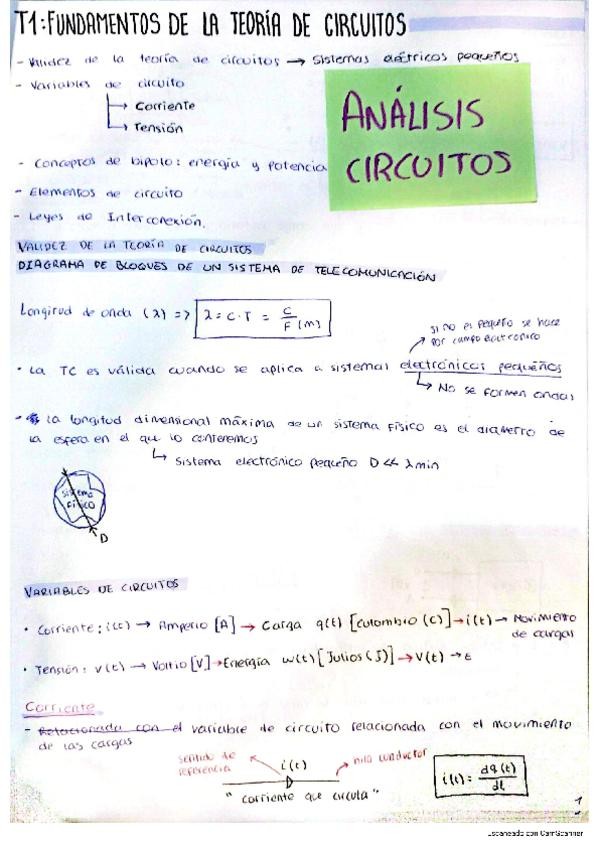 T1: FUNDAMENTOS DE LA TEORÍA DE CIRCUITOS
- Validez de la teoría de circuitos → Sistemas eléctricos pequeños
- Variables de circuito
→ Corriente
→ Tensión
ANÁLISIS
CIRCUITOS
- Conceptos de bipolo: energía y potencia
- Elementos de circuito
- Leyes de Interconexión.
VALIDEZ DE LA TEORÍA DE CIRCUITOS
DIAGRAMA DE BLOQUES DE UN SISTEMA DE TELECOMUNICACIÓN
Longitud de onda (λ) => λ = C · T = C / F (m)
si no es pequeño se hace
por campo electrónico
· La TC es válida cuando se aplica a sistemas electrónicos pequeños
→ No se formen ondas
- La longitud dimensional máxima de un sistema físico es el diámetro de
la esfera en el que lo contenemos
→ sistema electrónico pequeño D << λ min
sistema
físico
D
VARIABLES DE CIRCUITOS
· Corriente: i(t) → Amperio [A] → Carga q(t) [culombio (C)] → i(t) → Movimiento
de cargas
· Tensión: v(t) → Voltio [V] → Energía w(t) [Julios (J)] → V(t) → E
Corriente
- Relacionada con el variable de circuito relacionada con el movimiento
de las cargas
sentido de
referencia
i(t)
hilo conductor
"corriente que circula"
i(t) = dq(t) / dt
1
Escaneado con CamScanner